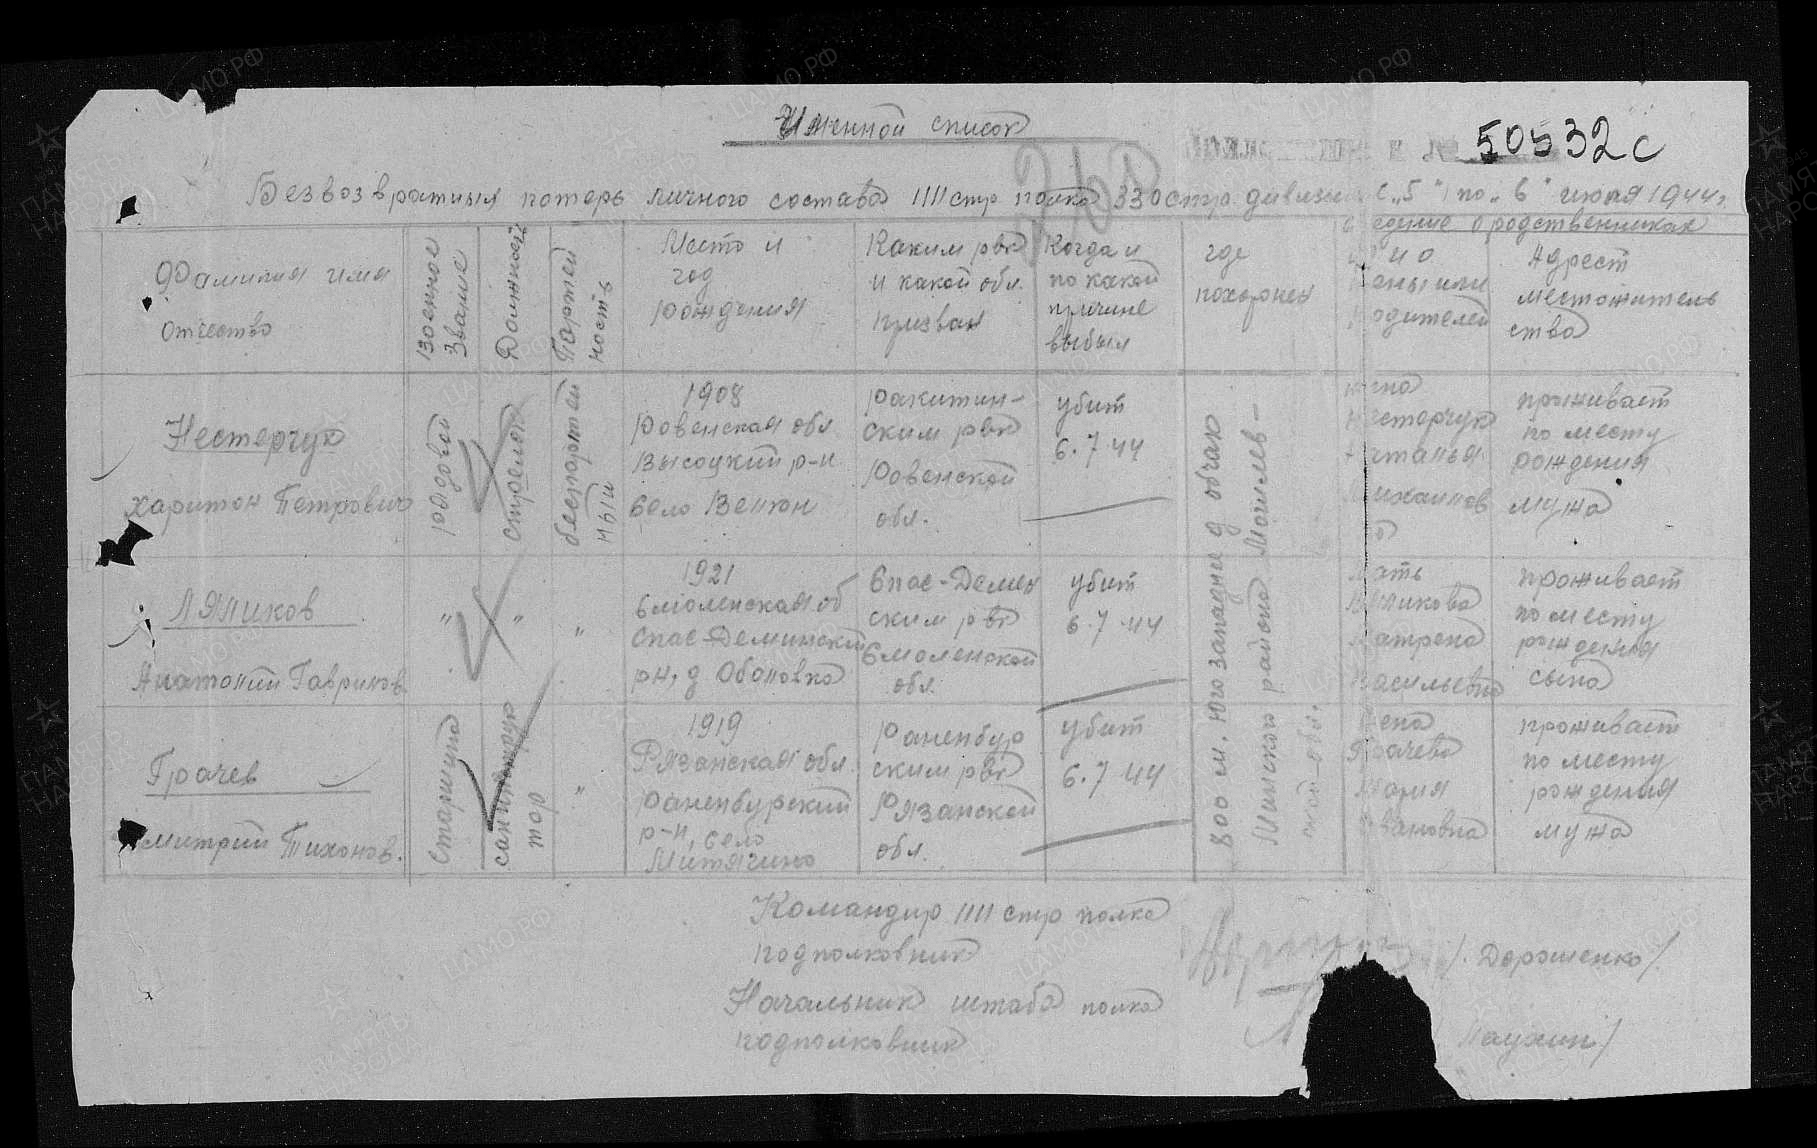 Именной список
50532с
Безвозвратных потерь личного состава 1111 стр полка 330 стр. дивизии с „5" по „6" июля 1944 г.
Фамилия имя
отчество
Военное
звание
Должность
Партей
ность
Место и
год
рождения
Каким рвк
и какой обл.
призван
Когда и
по какой
причине
выбыл
где
похоронен
едение о родственниках
и о
жены или
родителей
Адрест
местожитель
ства
Нестерчук
Харитон Петрович
рядовой
стрелок
беспартей
ный
1908
Ровенская обл
Высоцкий р-н
село
Ракитин-
ским рвк
Ровенской
обл.
убит
6.7 44
800 м. юго западнее д
Минского района
ской обл.
жена
Нестерчук
проживает
по месту
рождения
мужа
Ляликов
Анатолий Гаврилов.
"
"
"
1921
Смоленская об
Спас-Деминский
рн, д
Спас-Демен
ским рвк
Смоленской
обл.
убит
6.7 44
мать
Ляликова
Матрена
Васильевна
проживает
по месту
рождения
сына
Грачев
митрий Тихонов.
Старшина
санинструк
тор
"
1919
Рязанская обл.
Раненбурский
р-н, село
Раненбур
ским рвк
Рязанской
обл.
убит
6.7 44
жена
Грачева
Мария
Ивановна
проживает
по месту
рождения
мужа
Командир 1111 стр полка
подполковник
/Дорошенко/
Начальник штаба полка
подполковник